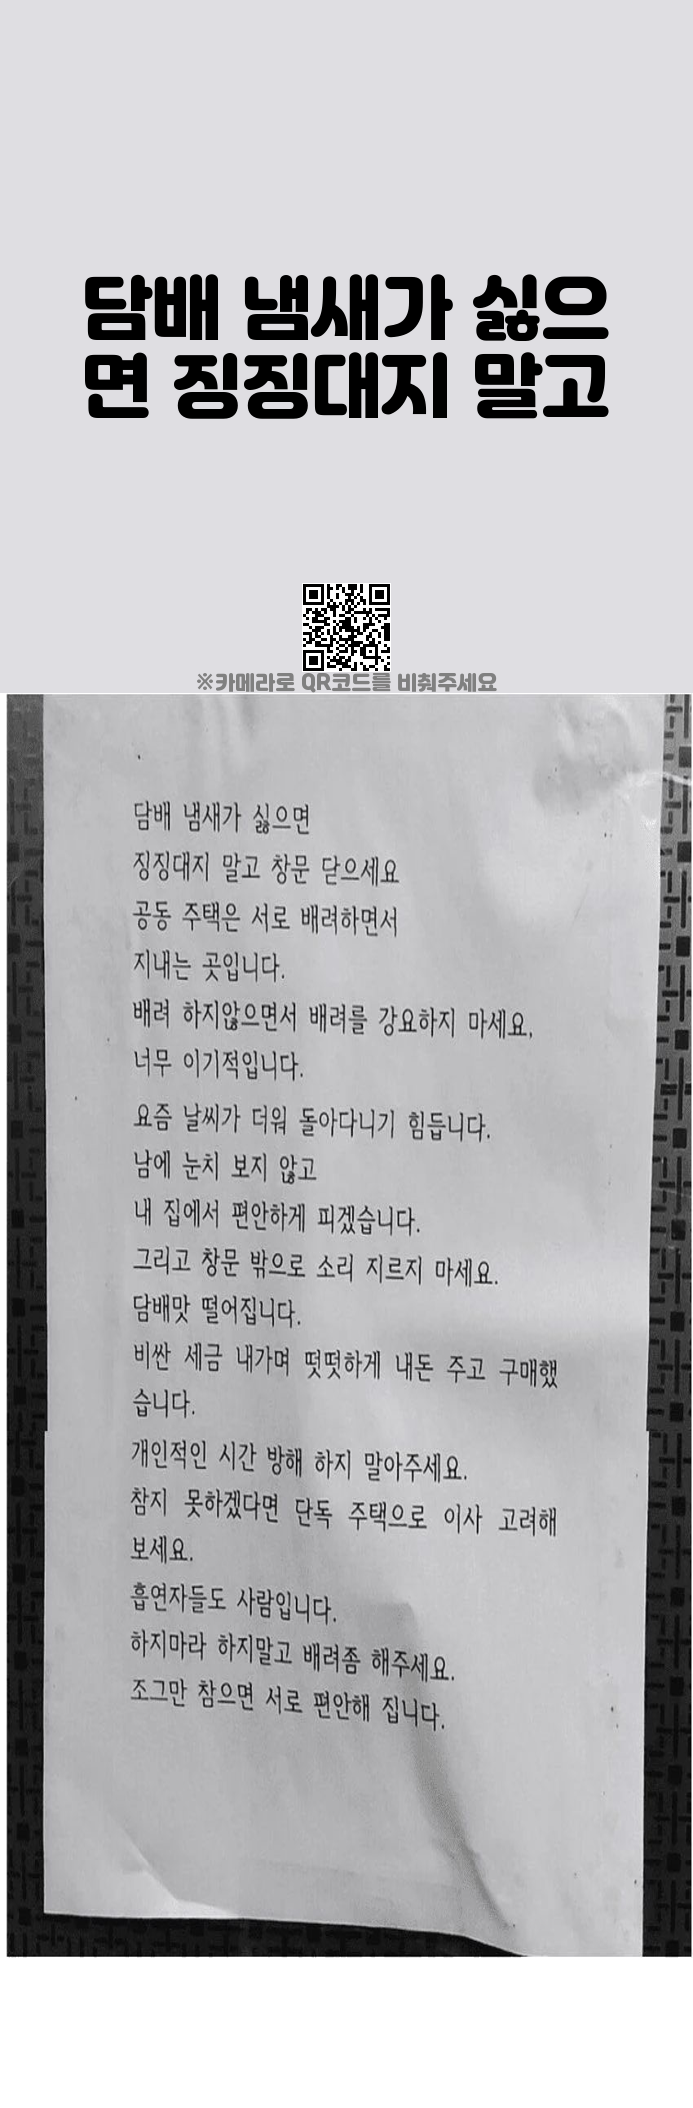 담배 냄새가 싫으
면 징징대지 말고
※카메라로 QR코드를 비춰주세요
담배 냄새가 싫으면
징징대지 말고 창문 닫으세요
공동 주택은 서로 배려하면서
지내는 곳입니다.
배려 하지않으면서 배려를 강요하지 마세요,
너무 이기적입니다.
요즘 날씨가 더워 돌아다니기 힘듭니다.
남에 눈치 보지 않고
내 집에서 편안하게 피겠습니다.
그리고 창문 밖으로 소리 지르지 마세요.
담배맛 떨어집니다.
비싼 세금 내가며 떳떳하게 내돈 주고 구매했
습니다.
개인적인 시간 방해 하지 말아주세요.
참지 못하겠다면 단독 주택으로 이사 고려해
보세요.
흡연자들도 사람입니다.
하지마라 하지말고 배려좀 해주세요.
조그만 참으면 서로 편안해 집니다.